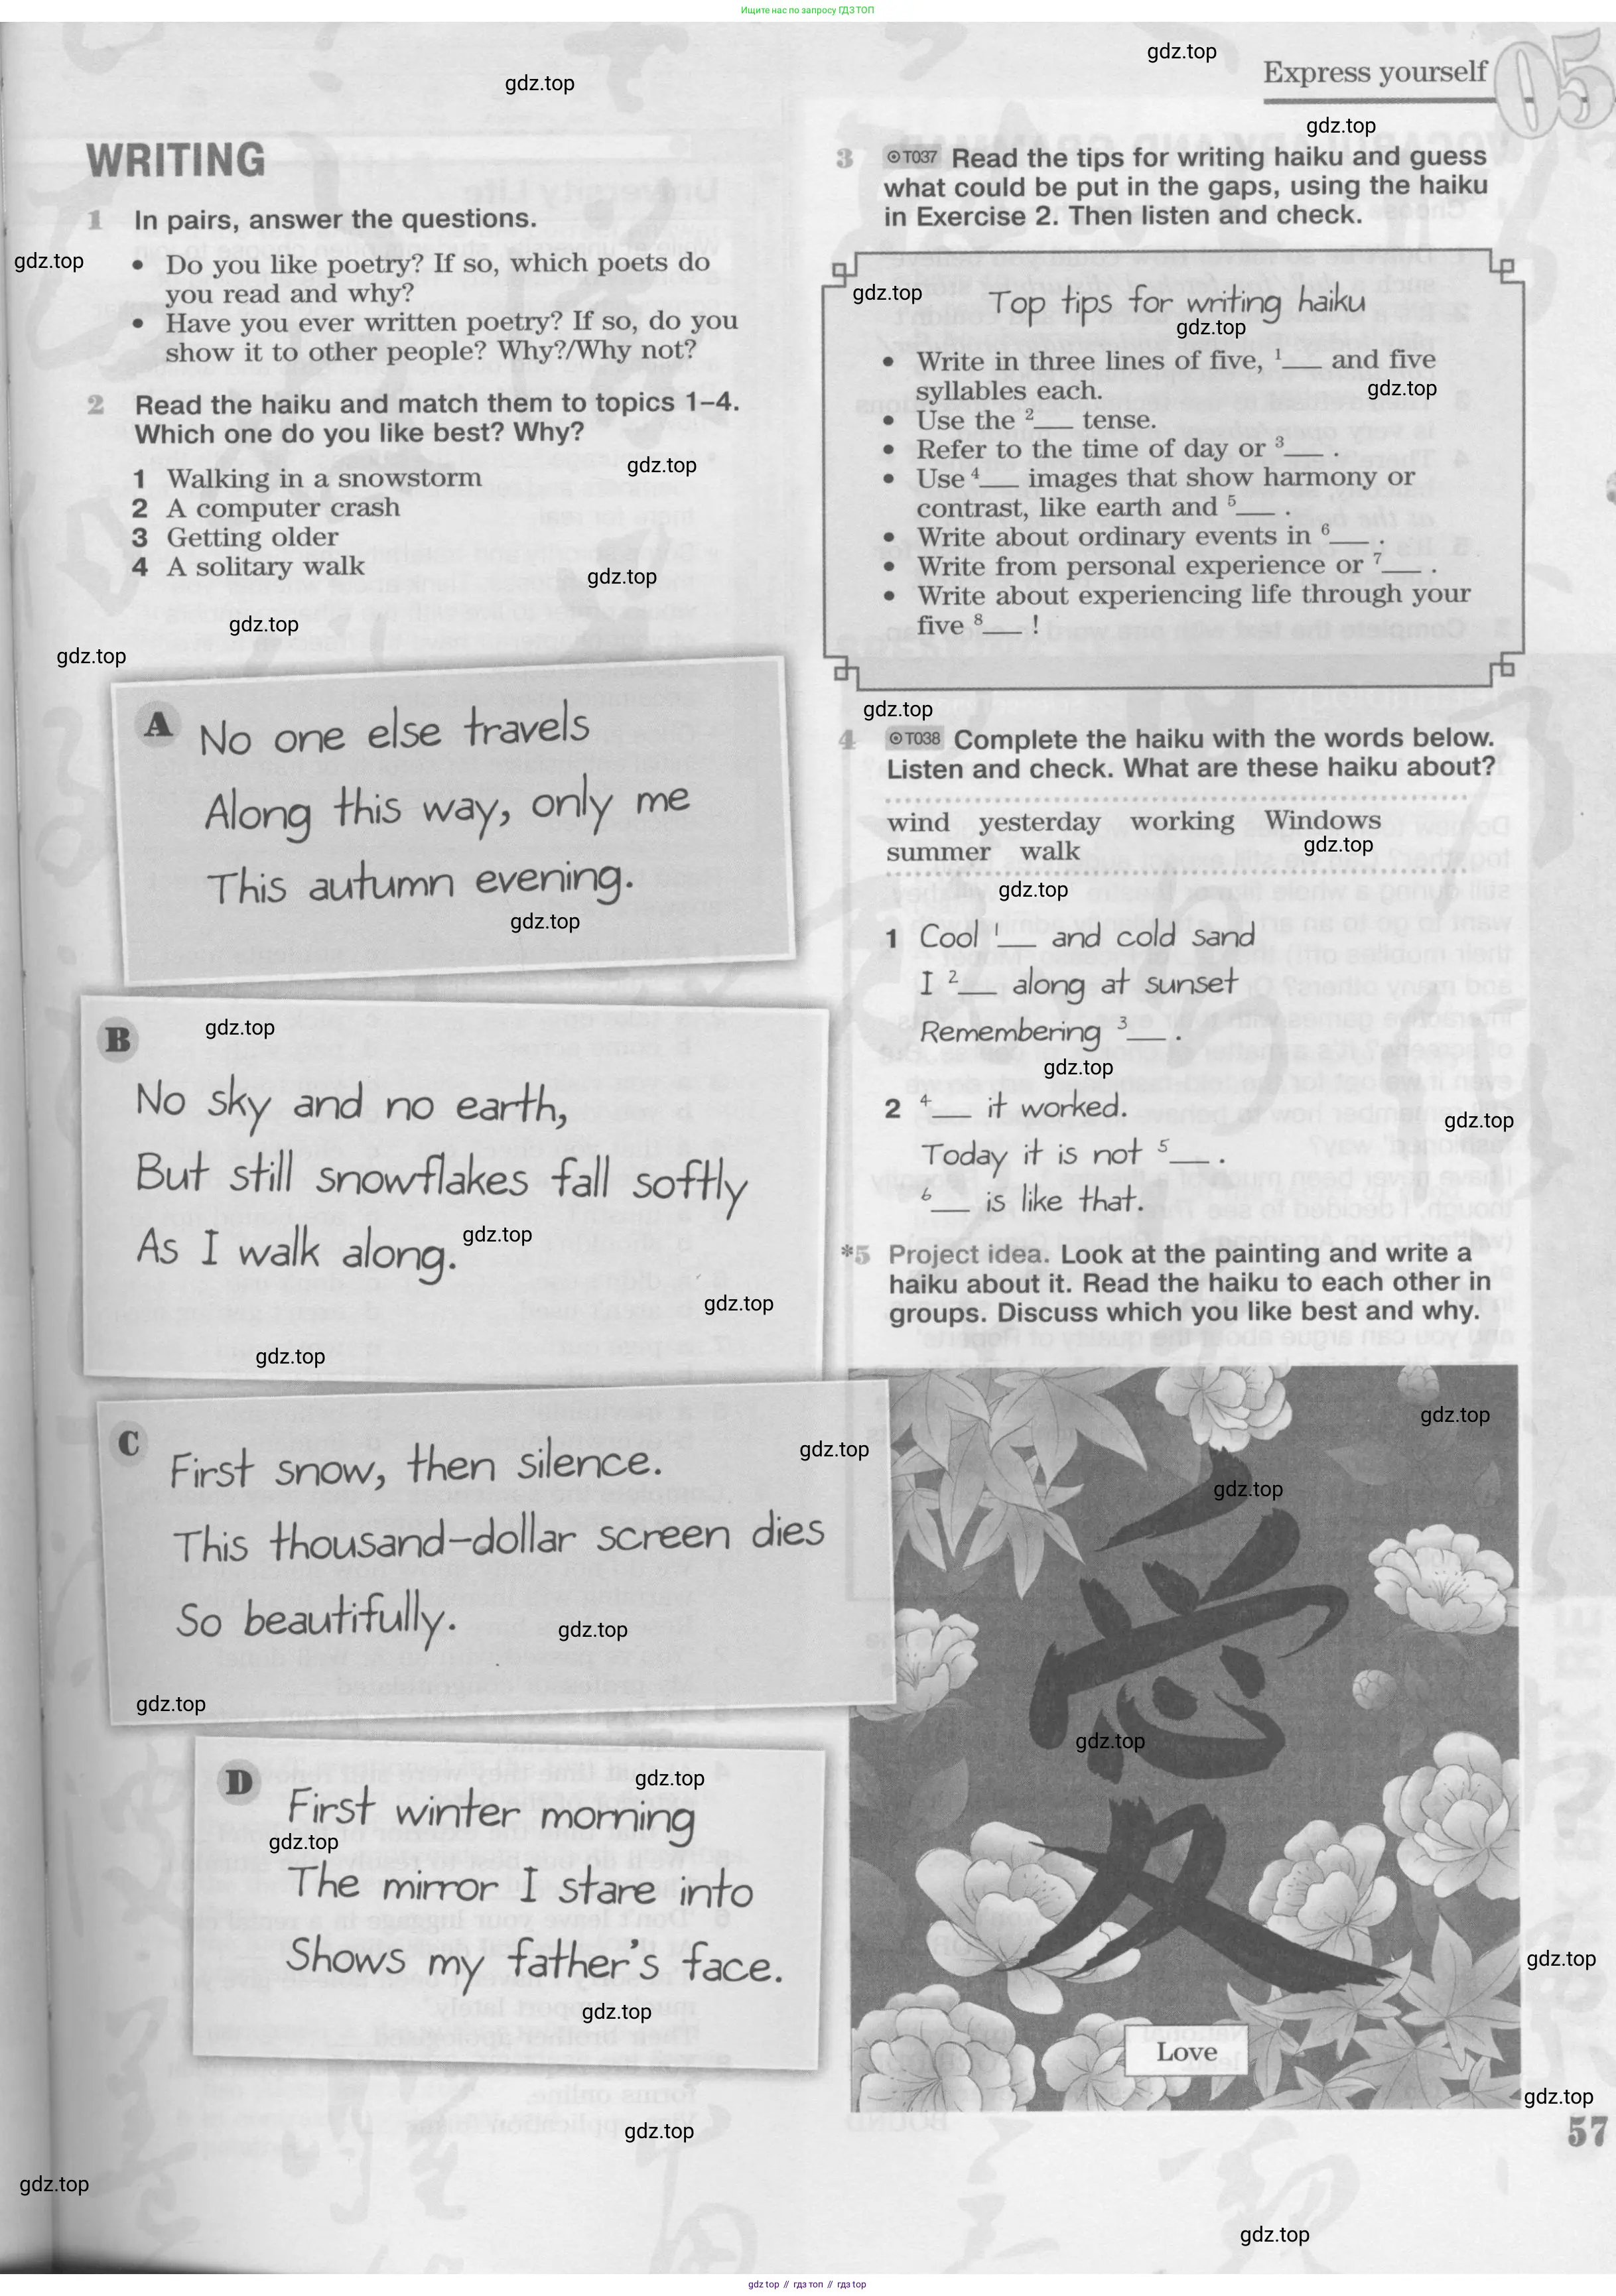 Ищите нас по запросу ГДЗ ТОП
gdz.top
gdz.top
Express yourself 05
gdz.top
WRITING
1 In pairs, answer the questions.
gdz.top
• Do you like poetry? If so, which poets do
you read and why?
• Have you ever written poetry? If so, do you
show it to other people? Why?/Why not?
2 Read the haiku and match them to topics 1–4.
Which one do you like best? Why?
gdz.top
1 Walking in a snowstorm
2 A computer crash
3 Getting older
4 A solitary walk
gdz.top
gdz.top
gdz.top
A No one else travels
Along this way, only me
This autumn evening.
gdz.top
B
gdz.top
No sky and no earth,
But still snowflakes fall softly
As I walk along.
gdz.top
gdz.top
gdz.top
C First snow, then silence.
gdz.top
This thousand-dollar screen dies
So beautifully.
gdz.top
gdz.top
D
gdz.top
First winter morning
gdz.top
The mirror I stare into
Shows my father's face.
gdz.top
gdz.top
gdz.top
3 T037 Read the tips for writing haiku and guess
what could be put in the gaps, using the haiku
in Exercise 2. Then listen and check.
gdz.top
Top tips for writing haiku
gdz.top
• Write in three lines of five, 1___ and five
syllables each.
gdz.top
• Use the 2___ tense.
• Refer to the time of day or 3___ .
• Use 4___ images that show harmony or
contrast, like earth and 5___ .
• Write about ordinary events in 6___ .
• Write from personal experience or 7___ .
• Write about experiencing life through your
five 8___ !
gdz.top
4 T038 Complete the haiku with the words below.
Listen and check. What are these haiku about?
wind yesterday working Windows
summer walk
gdz.top
gdz.top
1 Cool 1___ and cold sand
I 2___ along at sunset
Remembering 3___ .
gdz.top
2 4___ it worked.
gdz.top
Today it is not 5___ .
6___ is like that.
*5 Project idea. Look at the painting and write a
haiku about it. Read the haiku to each other in
groups. Discuss which you like best and why.
gdz.top
gdz.top
愛
gdz.top
gdz.top
Love
gdz.top
57
gdz.top
gdz top // гдз топ // гдз top